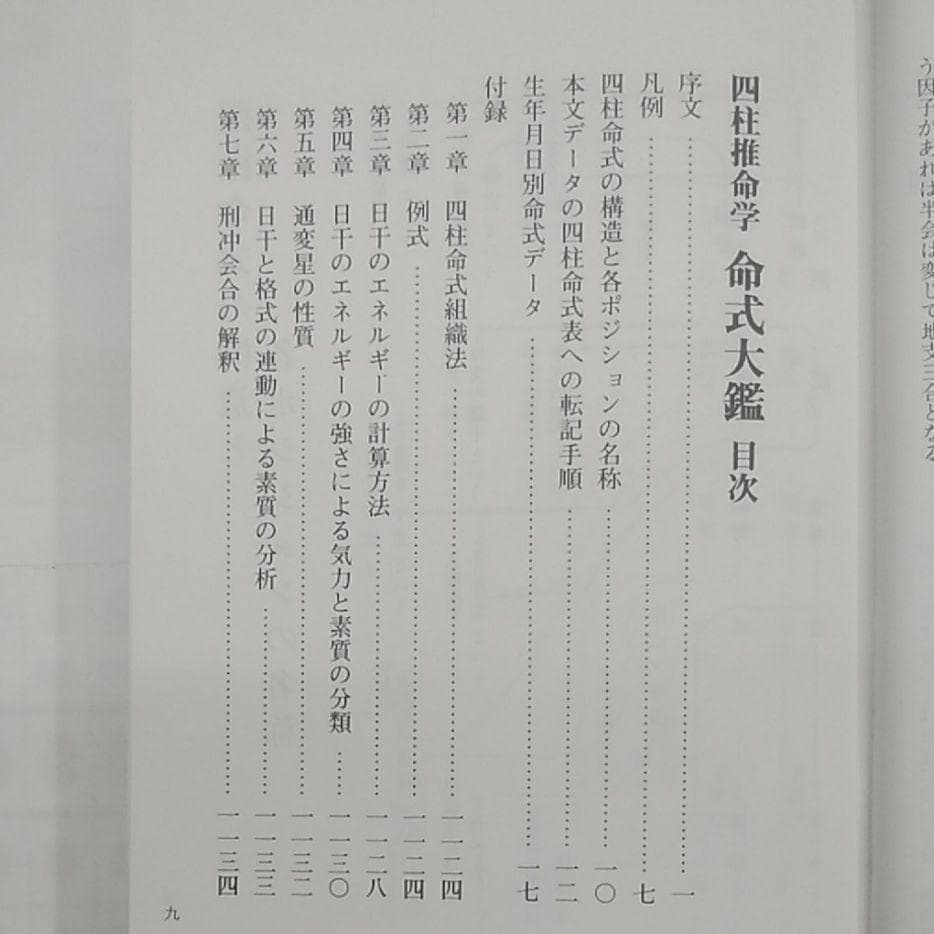 う因子があれば半会は変じて地支三合となる
四柱推命学 命式大鑑 目次
序文……一
凡例……七
四柱命式の構造と各ポジションの名称……一〇
本文データの四柱命式表への転記手順……一二
生年月日別命式データ……一七
付録
第一章 四柱命式組織法……一一二四
第二章 例式……一一二四
第三章 日干のエネルギーの計算方法……一一二八
第四章 日干のエネルギーの強さによる気力と素質の分類……一一三〇
第五章 通変星の性質……一一三二
第六章 日干と格式の連動による素質の分析……一一三三
第七章 刑冲会合の解釈……一一三四
九